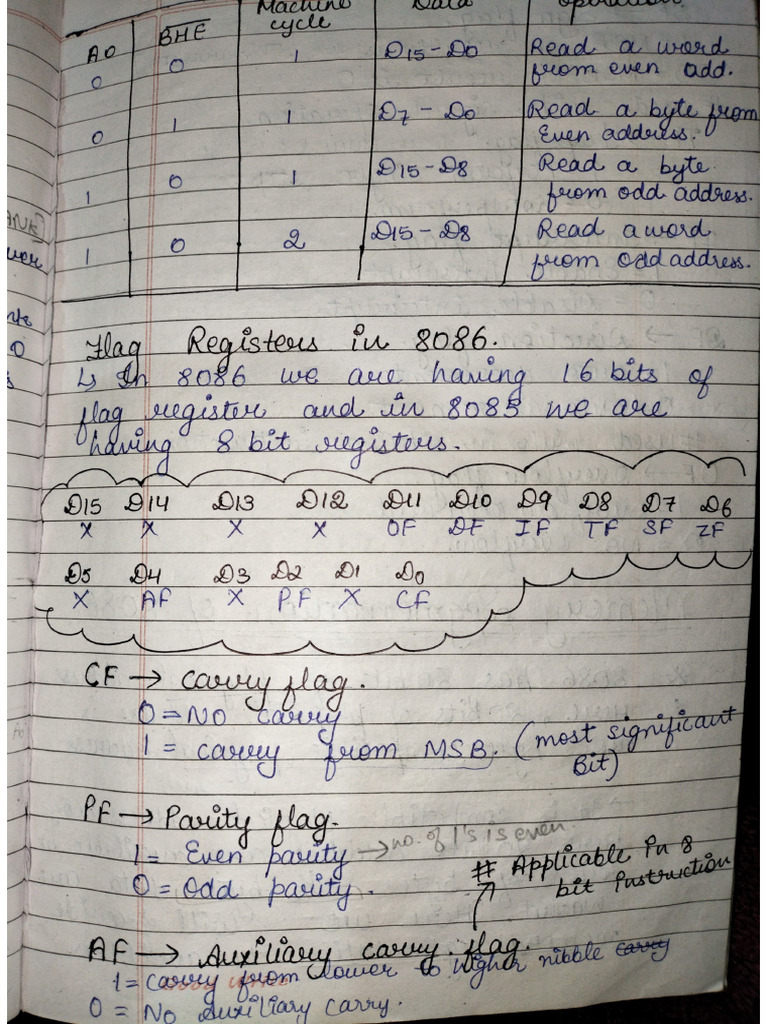 A0 BHE Machine cycle Data Operation
0 0 1 D15-D0 Read a word
from even add.
0 1 1 D7 - D0 Read a byte from
Even address.
1 0 1 D15-D8 Read a byte
from odd address.
1 0 2 D15-D8 Read a word
from odd address.
Flag Registers in 8086.
↳ In 8086 we are having 16 bits of
flag register and in 8085 we are
having 8 bit registers.
D15 D14 D13 D12 D11 D10 D9 D8 D7 D6
X X X X OF DF IF TF SF ZF
D5 D4 D3 D2 D1 D0
X AF X PF X CF
CF → Carry flag.
0 = No carry
1 = carry from MSB. (most significant
Bit)
PF → Parity flag.
1 = Even parity → no. of 1's is even.
0 = Odd parity.
# Applicable in 8
bit instruction
AF → Auxiliary carry flag.
1 = carry from lower to higher nibble carry
0 = No Auxiliary carry.